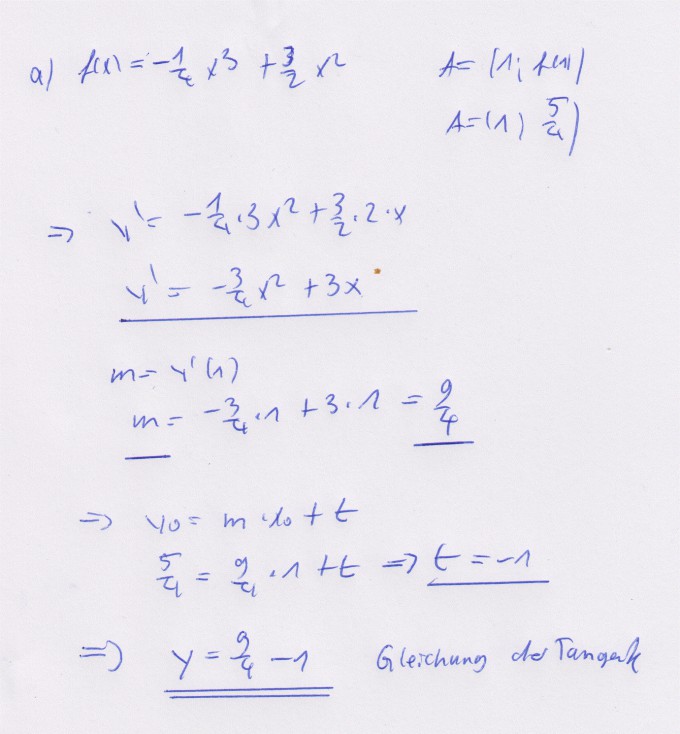 a) f(x) = -1/4 x³ + 3/2 x² A = (1; f(1))
A = (1; 5/4)
⇒ y' = -1/4 · 3x² + 3/2 · 2 · x
y' = -3/4 x² + 3x
m = y'(1)
m = -3/4 · 1 + 3 · 1 = 9/4
⇒ y₀ = m · x₀ + t
5/4 = 9/4 · 1 + t ⇒ t = -1
⇒ y = 9/4 - 1 Gleichung der Tangente